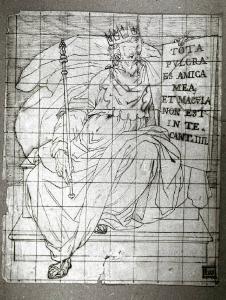 TOTA
PVLCRA
ES AMICA
MEA,
ET MACVLA
NON EST
IN TE.
CANT. IIII.